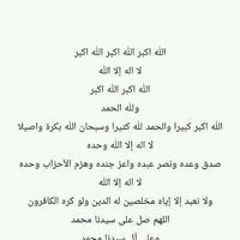 الله اكبر الله اكبر الله اكبر
لا اله إلا الله
الله اكبر الله اكبر
ولله الحمد
الله اكبر كبيرا والحمد لله كثيرا وسبحان الله بكرة واصيلا
لا اله إلا الله وحده
صدق وعده ونصر عبده واعز جنده وهزم الأحزاب وحده
لا اله إلا الله
ولا نعبد إلا إياه مخلصين له الدين ولو كره الكافرون
اللهم صل على سيدنا محمد
وعلى آل سيدنا محمد